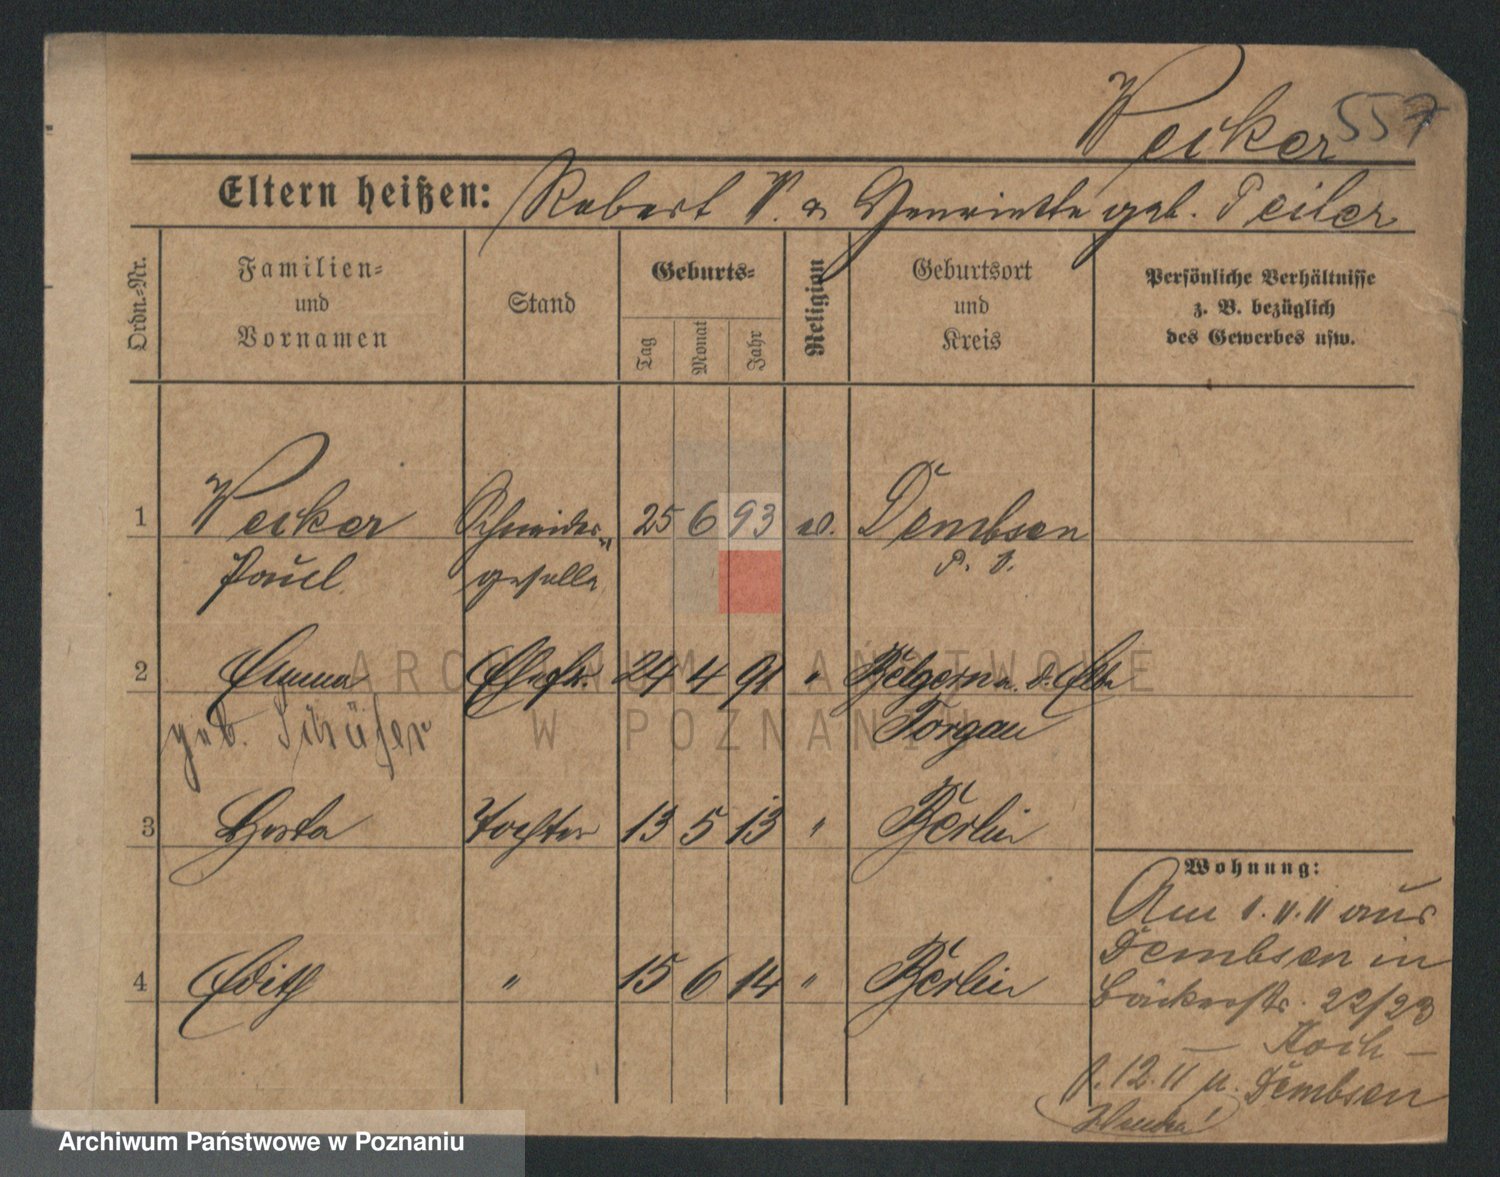 Weiker 557
Eltern heißen: Robert W. & Henriette geb. Peiler
Ordn.-Nr.
Familien-
und
Vornamen
Stand
Geburts-
Tag
Monat
Jahr
Religion
Geburtsort
und
Kreis
Persönliche Verhältnisse
z. B. bezüglich
des Gewerbes usw.
1 Weiker Schneider- 25 6 93 ev. Dembsen
Paul geselle P. O.
2 Emma Ehefr. 24 4 91 " Belgern a. d. Elbe
geb. Schäfer Torgau
3 Herta Tochter 13 5 13 " Berlin
Wohnung:
Am 1.11.11 aus
Dembsen in
4 Edith " 15 6 14 " Berlin
Bäckerstr. 22/23
Koch –
1.12.11 n. Dembsen
ARCHIWUM PAŃSTWOWE
W POZNANIU
Archiwum Państwowe w Poznaniu